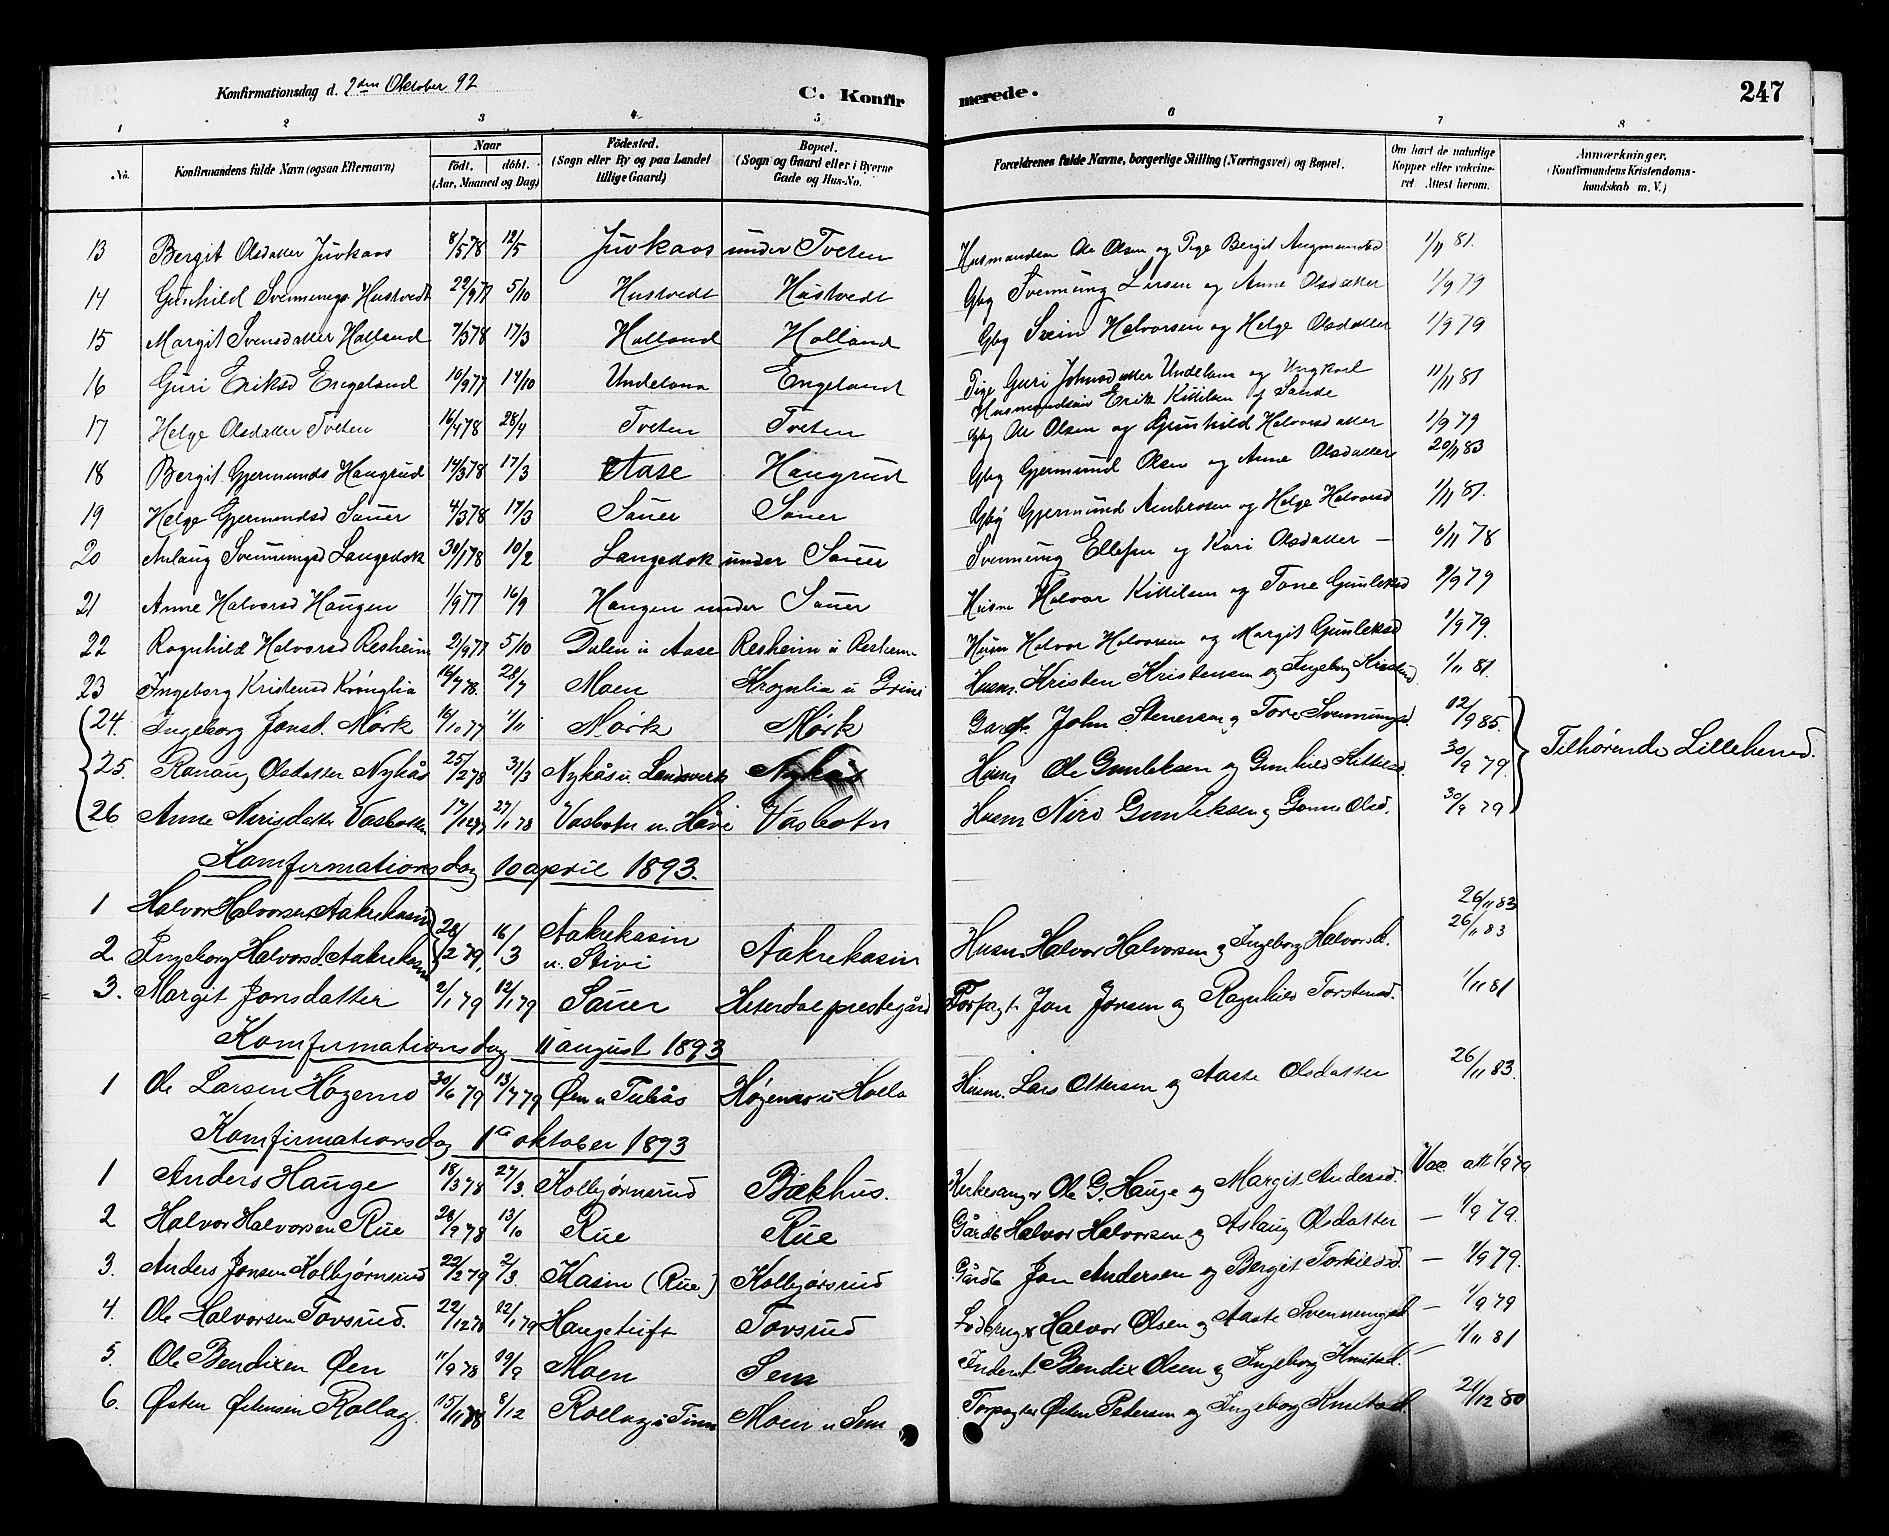 Konfirmationsdag d. 2den Oktober 92
C. Konfirmerede.
247
1 2 3 4 5 6 7 8
No.
Konfirmandens fulde Navn (ogsaa Efternavn)
Naar
født. døbt.
(Aar, Maaned og Dag)
Fødested.
(Sogn eller By og paa Landet
tillige Gaard)
Bopæl.
(Sogn og Gaard eller i Byerne
Gade og Hus-No.
Forældrenes fulde Navne, borgerlige Stilling (Næringsvei) og Bopæl.
Om havt de naturlige
Kopper eller vakcine-
ret. Attest herom.
Anmærkninger.
(Konfirmandens Kristendoms-
kundskab m. V.)
13 Bergit Olsdatter Juvkaas 8/5 78 12/5 Juvkaas under Tveten Husmandsøn Ole Olsen og Pige Bergit Angmundsd 1/11 81.
14 Gunhild Svennungs. Hustvedt 22/9 77 5/10 Hustvedt Hustvedt Gbg Svennung Larsen og Anne Olsdatter 1/9 79
15 Margit Svensdatter Holland 7/3 78 17/3 Holland Holland Gbg Svein Halvorsen og Helge Olsdatter 1/9 79
16 Guri Eriksd Engeland 10/9 77 14/10 Undelana Engeland Pige Guri Johnsdatter Undelam og Ungkarl
Husmandsøn Erik Kittilsen af Sande 11/11 81
17 Helge Olsdatter Tveten 16/4 78 28/4 Tveten Tveten Gbg Ole Olsen og Gunhild Halvorsdatter 1/9 79
18 Bergit Gjermunds Haugrud 14/3 78 17/3 Aase Haugrud Gbg Gjermund Olsen og Anne Olsdatter 20/11 83
19 Helge Gjermundsd Sauer 4/3 78 17/3 Sauer Sauer Gbg Gjermund Ambrosen og Helge Halvorsd 1/11 81.
20 Aslaug Svennungsd Langedok 30/1 78 10/2 Langedok under Sauer Svennung Ellefsen og Kari Olsdatter — 6/11 78
21 Anne Halvorsd Haugen 1/9 77 16/9 Haugen under Sauer Husm Halvor Kittilsen og Tone Gunleksd 9/9 79
22 Ragnhild Halvorsd Resheim 2/9 77 5/10 Dalen u Aase Resheim u Resheim Husm Halvor Halvorsen og Margit Gunleksd 1/9 79.
23 Ingeborg Kristensd Krognlia 16/7 78. 28/7 Moen Krognlia u Grini Husm. Kristen Kristensen og Ingeborg Kristensd 1/11 81.
24. Ingeborg Jonsd. Mørk 16/10 77 1/11 Mørk Mørk John Stenersen og Tore Svennungsd 12/9 85.
25. Ranaug Olsdatter Nykås 25/2 78 31/3 Nykås u. Landsverk Nykås Husm Ole Gunleksen og Gunhild Kittilsd. 30/9 79.
Tilhørende Lilleherred.
26 Anne Nirisdatter Vasbotten 17/12 77 27/1 78 Vasbotn u. Håve Vasbotn Husm Nird Gunleksen og Gonne Olsd. 30/9 79
Komfirmationsdag 10 april 1893.
1 Halvor Halvorsen Aakrekasin 26/11 83
2 Ingeborg Halvorsd. Aakrekasin 28/2 79. 16/3 Aakrekasin
u. Stivi Aakrekasin Husm Halvor Halvorsen og Ingeborg Halvorsd. 26/11 83
3. Margit Jonsdatter 2/1 79 12/1 79 Sauer Heterdal prestegård Forpagt. Jon Jonsen og Ragnhild Torstensd. 1/11 81
Komfirmationsdag 11 august 1893
1 Ole Larsen Høgemo 30/6 79 13/7 79 Øen u Tulsås Høgemo u Holla Husm. Lars Ottersen og Aaste Olsdatter 26/11 83.
Komfirmationsdag 1te oktober 1893
1 Anders Hauge 18/3 78 27/3. Kolbjørnsrud Bækhus. Kirkesanger Ole G. Hauge og Margit Andersd. Vac. att. 1/9 79
2 Halvor Halvorsen Rue 28/9 78 13/10 Rue Rue Gårdb Halvor Halvorsen og Aslaug Olsdatter — 1/9 79.
3. Anders Jonsen Kolbjørnsrud 22/2 79 2/3. Kasin (Rue) Kolbjørsrud Gårdb Jon Andersen og Bergit Torkildsd. — 1/9 79.
4. Ole Halvorsen Tovsrud. 22/12 78 12/1 79 Haugetuft Tovsrud Halvor Olsen og Aaste Svennungsd. — 1/9 79
5. Ole Bendixen Øen 11/9 78 19/9 Moen Sem Inderst Bendix Olsen og Ingeborg Knutsd. — 1/11 81
6. Østen Østensen Rollag. 15/11 78 8/12 Rollag i Tinn Moen u Sem Forpagter Østen Petersen og Ingeborg Knutsd. 21/12 80